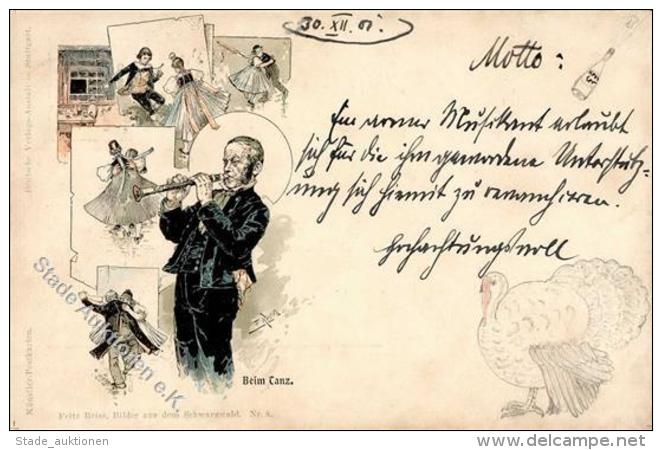 30. XII. 01.
Motto:
Ein armer Musikant erlaubt
sich für die ihm gewordene Unterstütz-
ung sich hiermit zu revanchieren.
Hochachtungsvoll
Beim Tanz.
Fritz Reiss, Bilder aus dem Schwarzwald. Nr. 8.
Künstler-Postkarten.
Deutsche Verlags-Anstalt in Stuttgart.
Stade Auktionen e.K
Stade_auktionen
www.delcampe.net